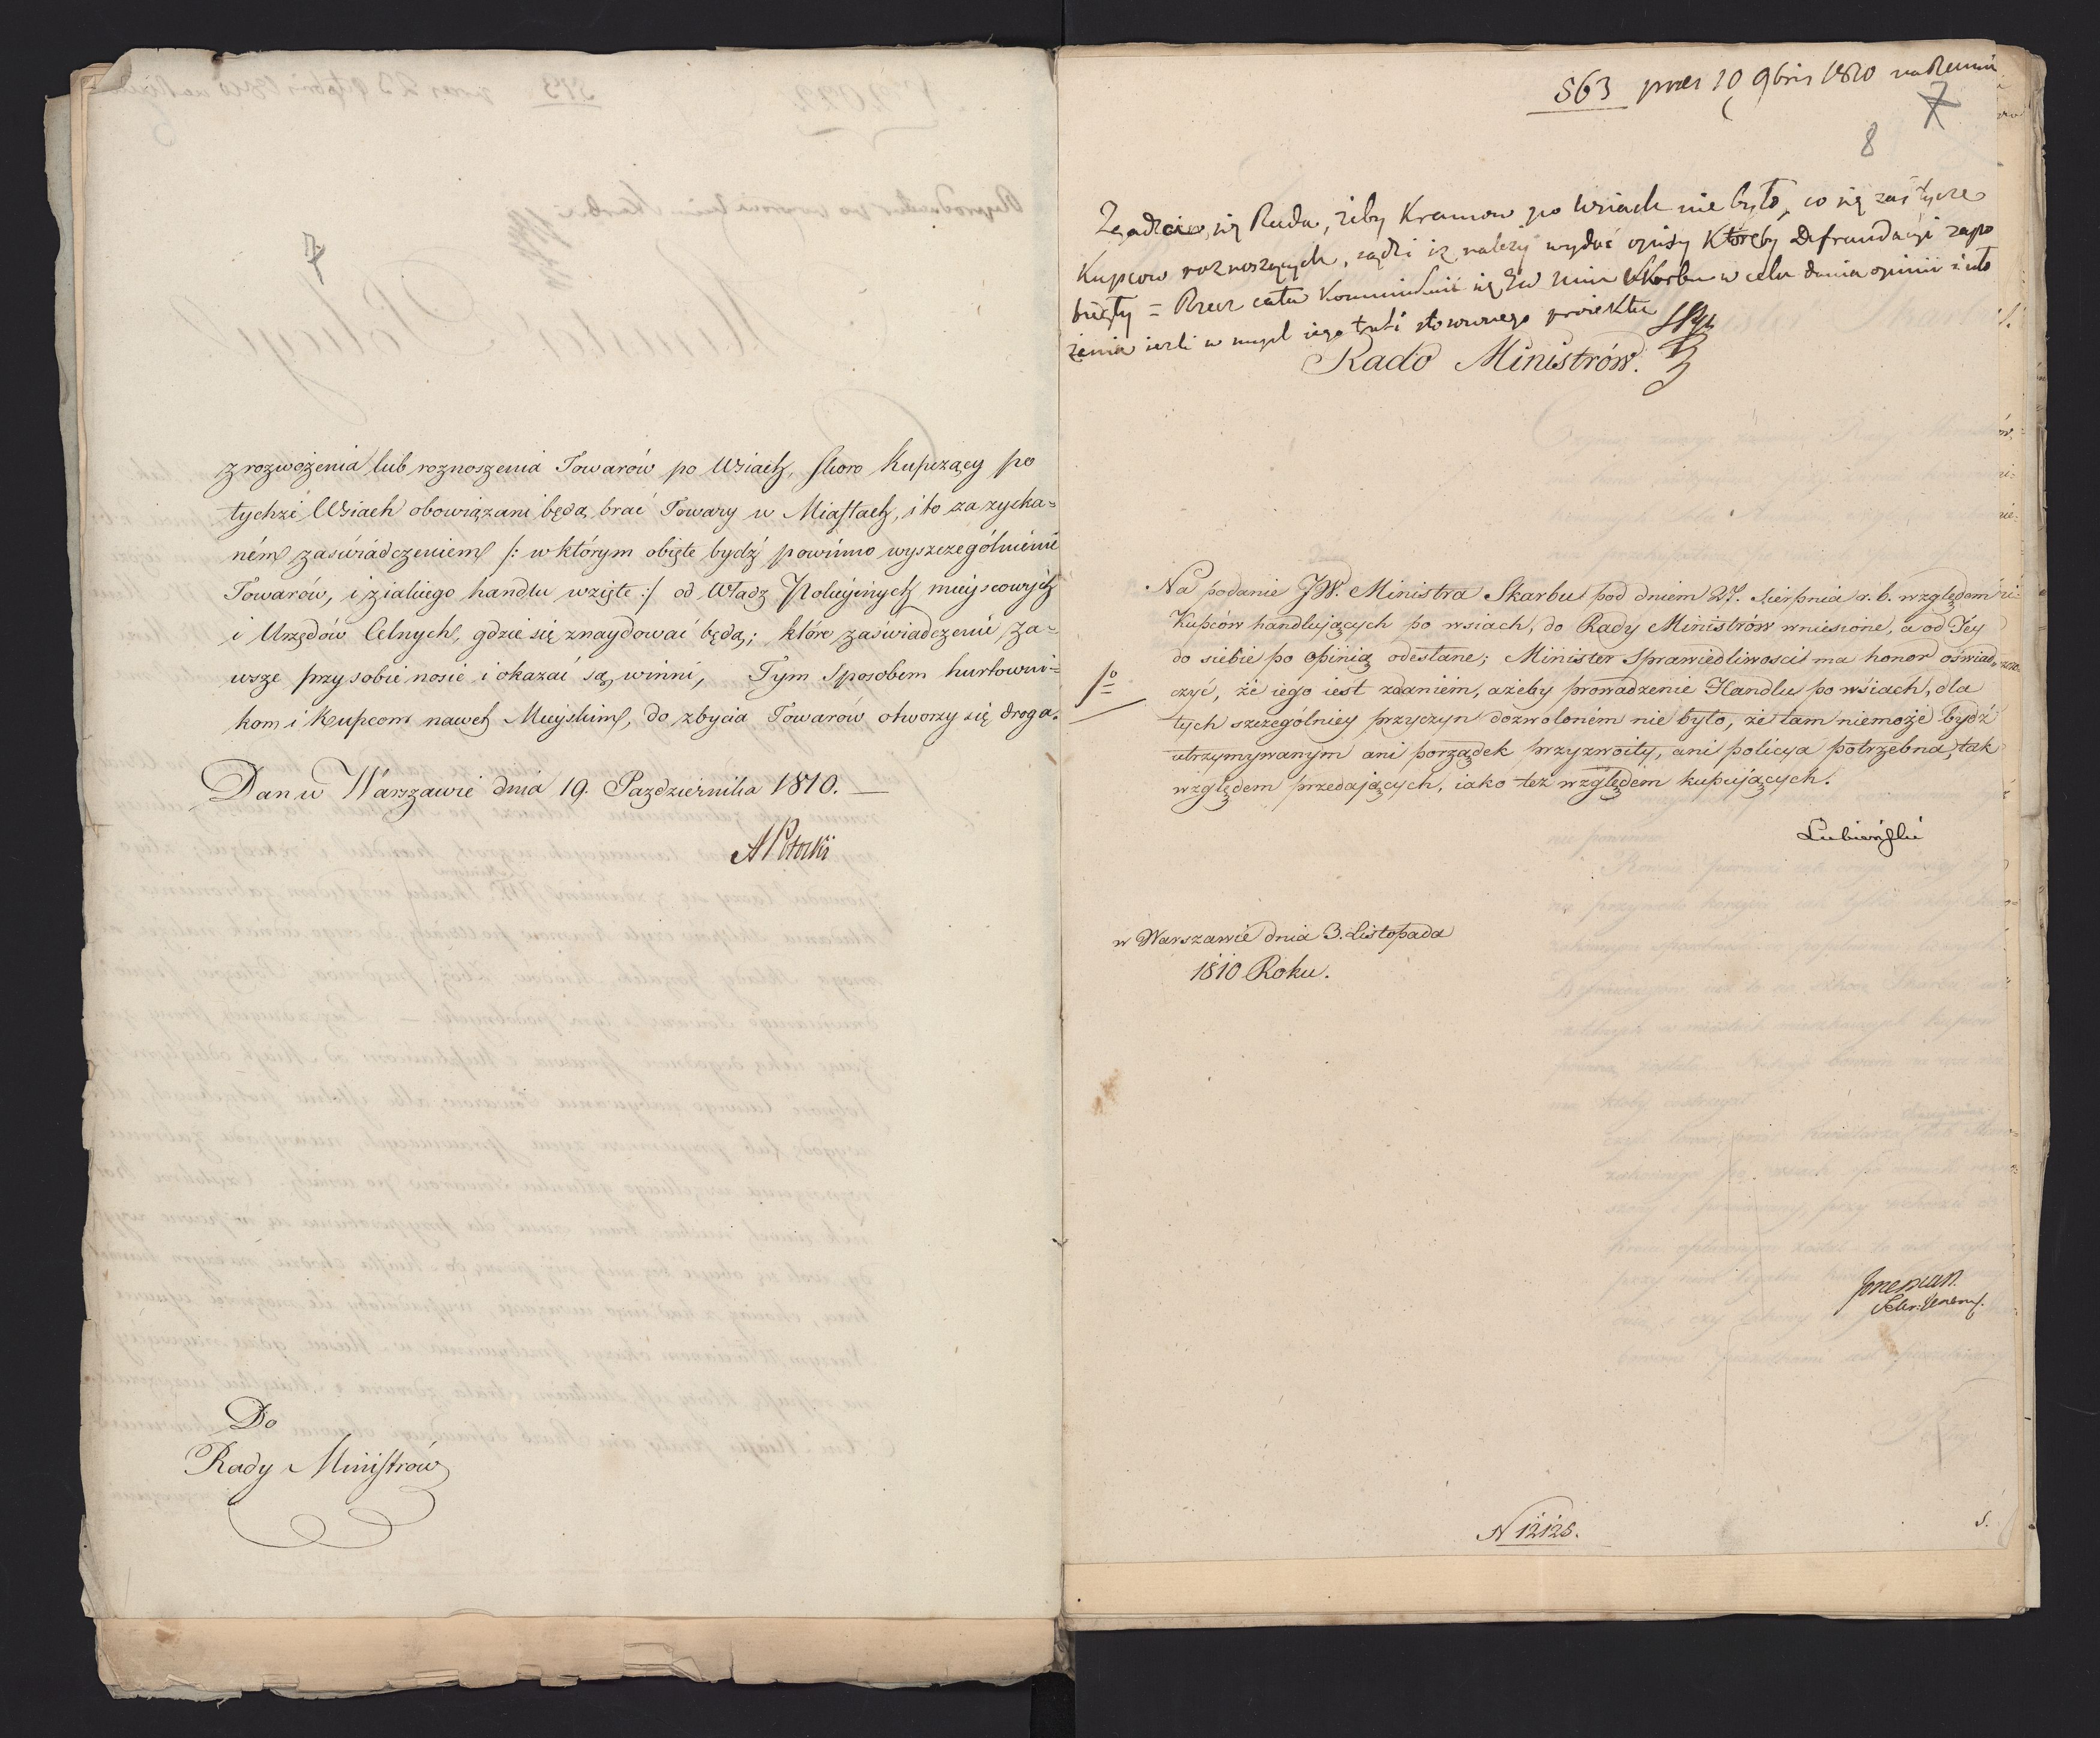 7
z rozwożenia lub roznoszenia Towarów po Wsiach, skoro Kupczący po
tychże Wsiach obowiązani będą brać Towary w Miastach, i to za zyska=
ném zaświadczeniem /: w którym obięte bydź powinno wyszczególnienie
Towarów, i z iakiego handlu wzięte :/ od Władz Policyinych mieyscowych
i Urzędów Celnych, gdzie się znaydować będą; które zaświadczenie za=
wsze przy sobie nosić i okazać są winni, Tym Sposobem hurtowni=
kom i Kupcom nawet Mieyskim, do zbycia Towarów otworzy się droga.
Dan w Warszawie dnia 19. Pazdziernika 1810.
APotocki
Do
Rady Ministrów
563 praes 10 9bris 1810
7
8
Zgadza się Rada, żeby Kramow po Wsiach nie było, co się zaś tycze
Kupcow roznoszących, sądzi iż należy wydać opisy Któreby Defraudacyi zapo
biegły = Rzecz cała Kommunikuie się JW Min Skarbu w celu dania opinii i uło
żenia iezli w mysl iego trafi stosownego proiektu
Rado Ministrów.
Na podanie JW. Ministra Skarbu pod dniem 27. Sierpnia r. b. względem
Kupców handlujących po wsiach, do Rady Ministrów wniesione, a od Jey
do siebie po opinią odesłane; Minister Sprawiedliwosci ma honor oświad=
czyć, że iego iest zdaniem, ażeby prowadzenie Handlu po wsiach, dla
tych szczególniey przyczyn dozwoloném nie było, że tam niemoże bydź
utrzymywanym ani porządek przyzwoity, ani policya potrzebna, tak
względem przedających, iako też względem kupujących.
Lubieński
w Warszawie dnia 3. Listopada
1810 Roku.
Sekr: Generl.
N 12126.